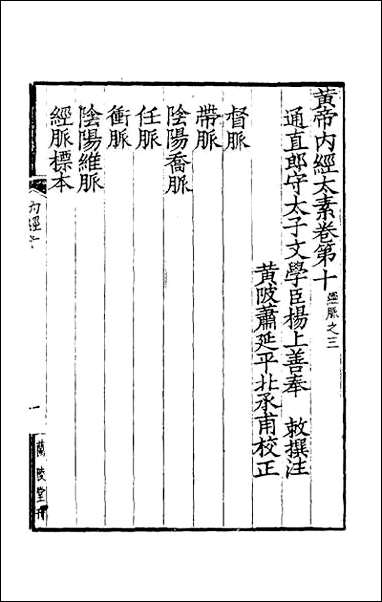 黃帝內經太素卷第十 經脈之三
通直郎守太子文學臣楊上善奉 敕撰注
黃陂蕭延平北承甫校正
督脈
帶脈
陰陽喬脈
任脈
衝脈
陰陽維脈
經脈標本
內經十
一
蘭陵堂刊